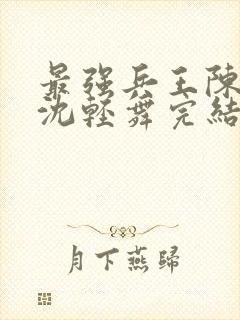 最强兵王陳
沈輕舞完結
月下燕歸